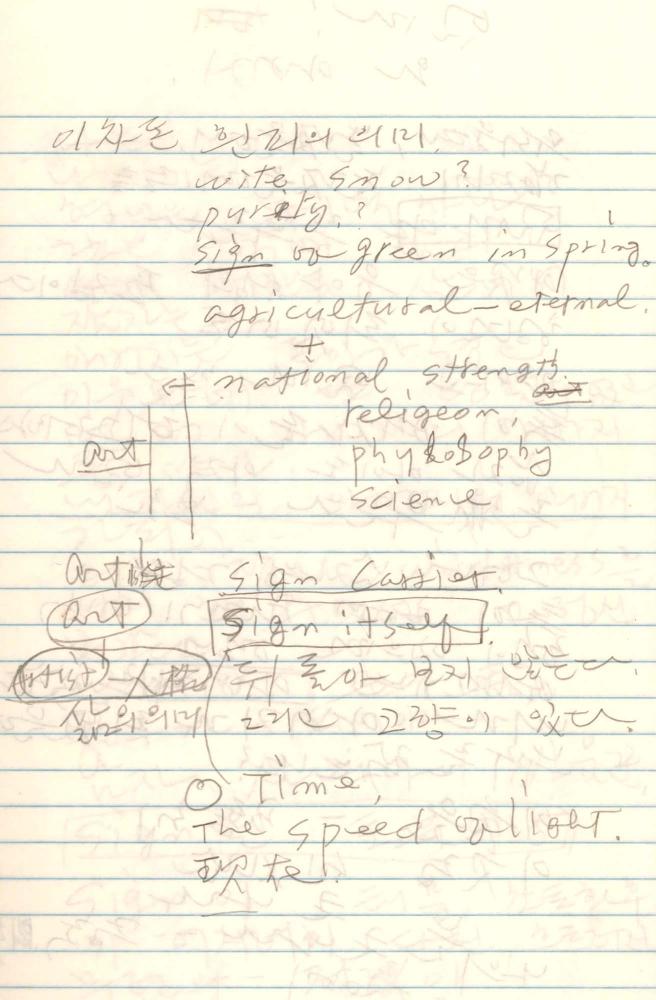 이차돈 흰피의 의미.
wite snow?
purity.?
sign of green in spring.
agricultural-eternal.
+
← national strength.
art
religeon,
art
phylosophy
science
art性 Sign Carrier.
Art Sign itself.
人格 뒤 돌아 보지 않는다.
삶의 의미 그리고 고향이 있다.
○ Time,
The speed of light.
現在.